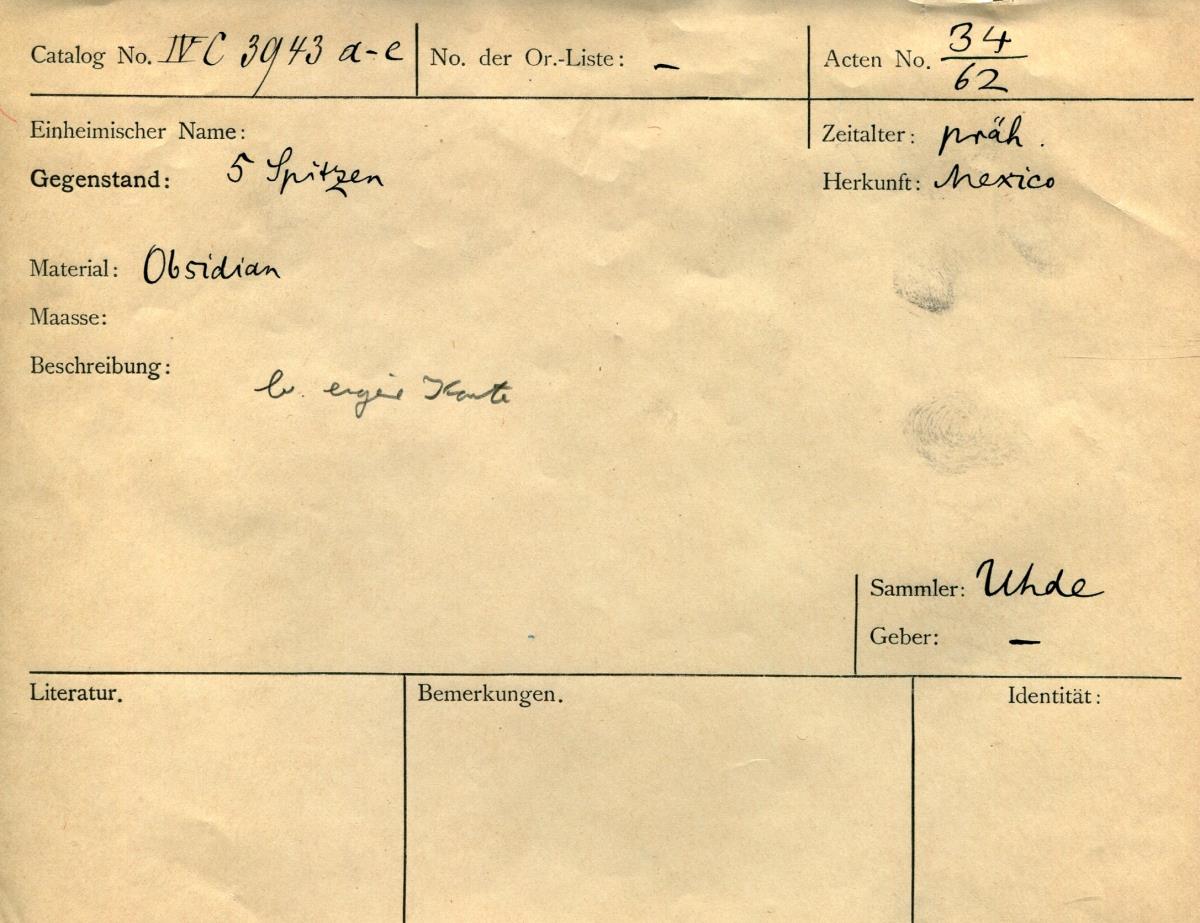 Catalog No. IV C 3943 a-e
No. der Or.-Liste: –
Acten No. 34/62
Einheimischer Name:
Zeitalter: präh.
Gegenstand: 5 Spitzen
Herkunft: Mexico
Material: Obsidian
Maasse:
Beschreibung:
b. Karte
Sammler: Uhde
Geber: –
Literatur.
Bemerkungen.
Identität: